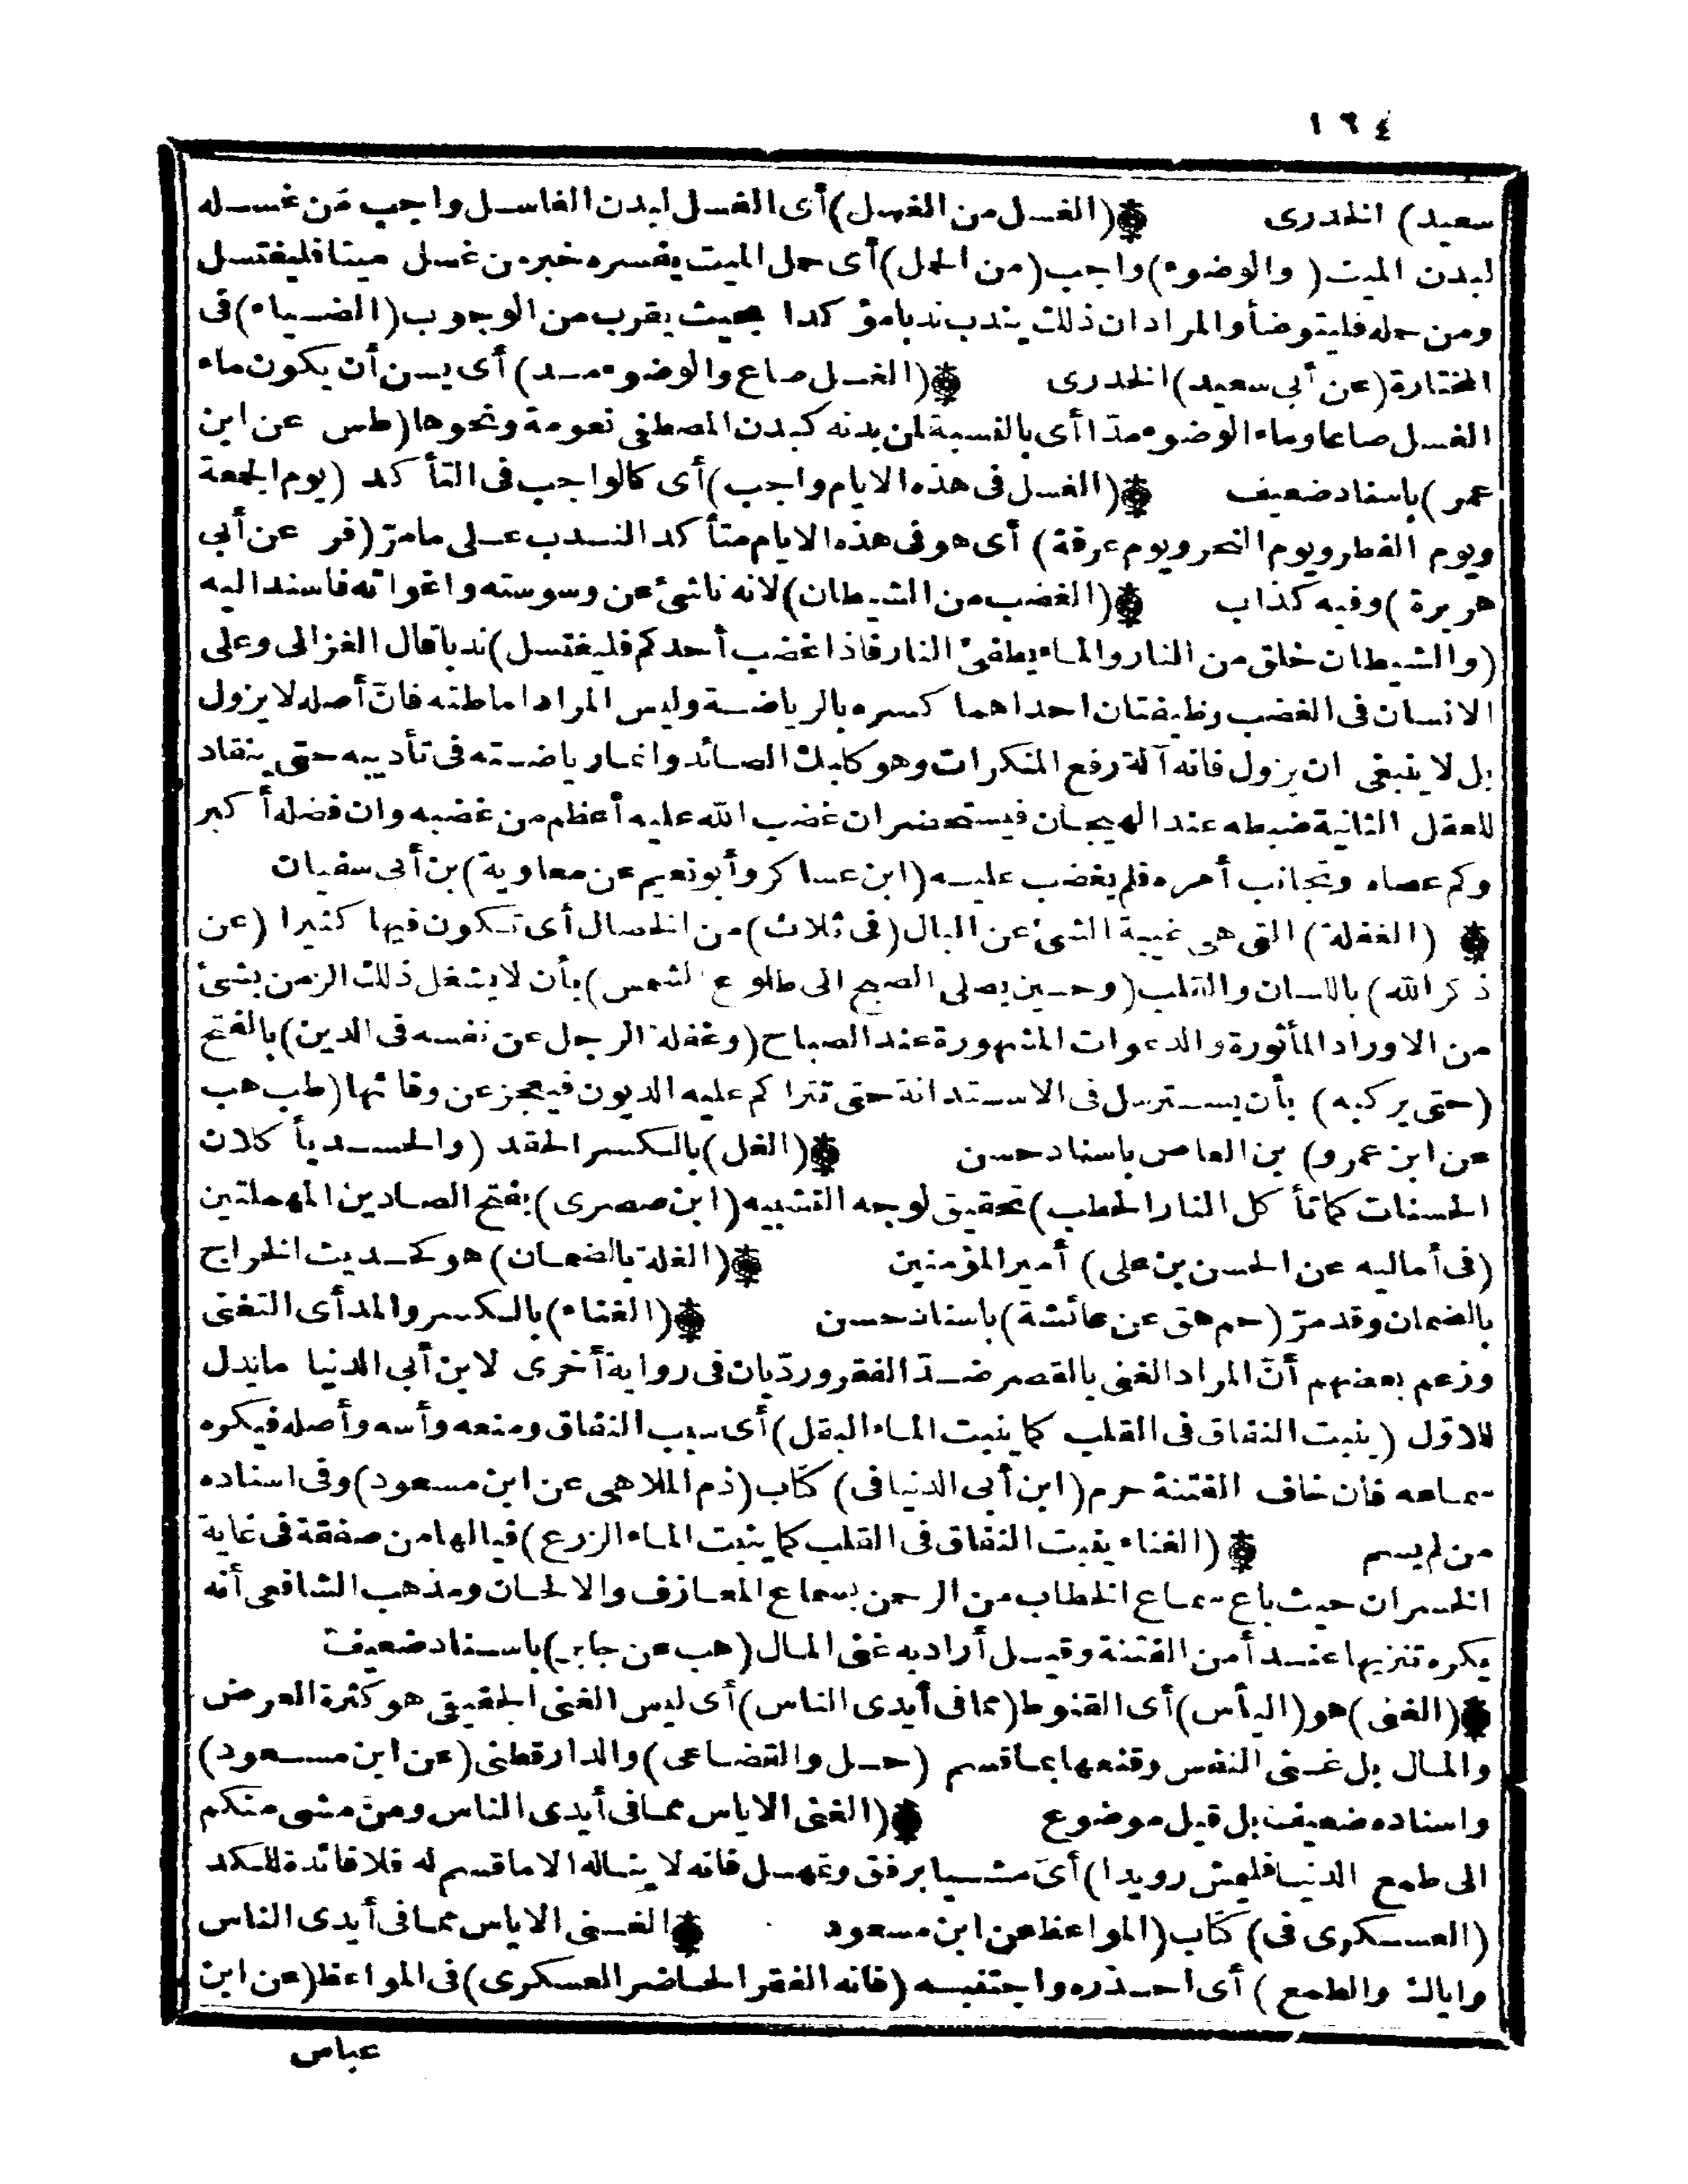 ١٦٤
سعيد) الخدرى (الغسل من الغسل) أى الغسل لبدن الغاسل واجب من غسله
لبدن الميت (والوضوء) واجب (من الحمل) أى حمل الميت يفسره خبر من غسل ميتا فليغتسل
ومن حمله فليتوضأ والمراد ان ذلك يندب ندبا مؤكدا بحيث يقرب من الوجوب (الضياء) فى
المختارة (عن أبى سعيد) الخدرى (الغسل صاع والوضوء مد) أى يسن أن يكون ماء
الغسل صاعا وماء الوضوء مدّا أى بالنسبة لمن بدنه كبدن المصطفى نعومة ونحوها (طس عن ابن
عمر) باسناد ضعيف (الغسل فى هذه الايام واجب) أى كالواجب فى التأكد (يوم الجمعة
ويوم الفطر ويوم النحر ويوم عرفة) أى هو فى هذه الايام متأكد الندب على ما مرّ (فر عن أبى
هريرة) وفيه كذاب (الغضب من الشيطان) لانه ناشئ عن وسوسته واغوائه فاسند اليه
(والشيطان خلق من النار والماء يطفئ النار فاذا غضب أحدكم فليغتسل) ندبا قال الغزالى وعلى
الانسان فى الغضب وظيفتان احداهما كسره بالرياضة وليس المراد اماطته فانّ أصله لا يزول
بل لا ينبغى ان يزول فانه آلة رفع المنكرات وهو كلبك الصائد وانما رياضته فى تأديبه حتى ينقاد
للعقل الثانية ضبطه عند الهيجان فيستحضر ان غضب الله عليه أعظم من غضبه وان فضله أكبر
وكم عصاه وتجانب أمره فلم يغضب عليه (ابن عساكر وأبو نعيم عن معاوية) بن أبى سفيان
(الغفلة) التى هى غيبة الشئ عن البال (فى ثلاث) من الخصال أى تكون فيها كثيرا (عن
ذكر الله) باللسان والقلب (وحين يصلى الصبح الى طلوع الشمس) بأن لا يشغل ذلك الزمن بشئ
من الاوراد المأثورة والدعوات المشهورة عند الصباح (وغفلة الرجل عن نفسه فى الدين) بالفتح
(حتى يركبه) بأن يسترسل فى الاستدانة حتى تتراكم عليه الديون فيعجز عن وفائها (طب هب
عن ابن عمرو) بن العاص باسناد حسن (الغل) بالكسر الحقد (والحسد يأكلان
الحسنات كما تأكل النار الحطب) تحقيق لوجه التشبيه (ابن صصرى) بفتح الصادين المهملتين
(فى أماليه عن الحسن بن على) أمير المؤمنين (الغلة بالضمان) هو كحديث الخراج
بالضمان وقد مرّ (حم هق عن عائشة) باسناد حسن (الغناء) بالكسر والمد أى التغنى
وزعم بعضهم أنّ المراد الغنى بالقصر ضدّ الفقر وردّ بان فى رواية أخرى لابن أبى الدنيا ما يدل
للاوّل (ينبت النفاق فى القلب كما ينبت الماء البقل) أى سبب النفاق ومنبعه وأسه وأصله فيكره
سماعه فان خاف الفتنة حرم (ابن أبى الدنيا فى) كتاب (ذم الملاهى عن ابن مسعود) وفى اسناده
من لم يسم (الغناء ينبت النفاق فى القلب كما ينبت الماء الزرع) فيالها من صفقة فى غاية
الخسران حيث باع سماع الخطاب من الرحمن بسماع المعازف والالحان ومذهب الشافعى أنه
يكره تنزيها عند أمن الفتنة وقيل أراد به غنى المال (هب عن جابر) باسناد ضعيف
(الغنى) هو (اليأس) أى القنوط (مما فى أيدى الناس) أى ليس الغنى الحقيقى هو كثرة العرض
والمال بل غنى النفس وقنعها بما قسم (حل والقضاعى) والدارقطنى (عن ابن مسعود)
واسناده ضعيف بل قيل موضوع (الغنى الاياس مما فى أيدى الناس ومن مشى منكم
الى طمع الدنيا فليمش رويدا) أى مشيا برفق وتمهل فانه لا يناله الا ما قسم له فلا فائدة للكد
(العسكرى فى) كتاب (المواعظ عن ابن مسعود الغنى الاياس مما فى أيدى الناس
واياك والطمع) أى احذره واجتنبه (فانه الفقر الحاضر العسكرى) فى المواعظ (عن ابن
عباس